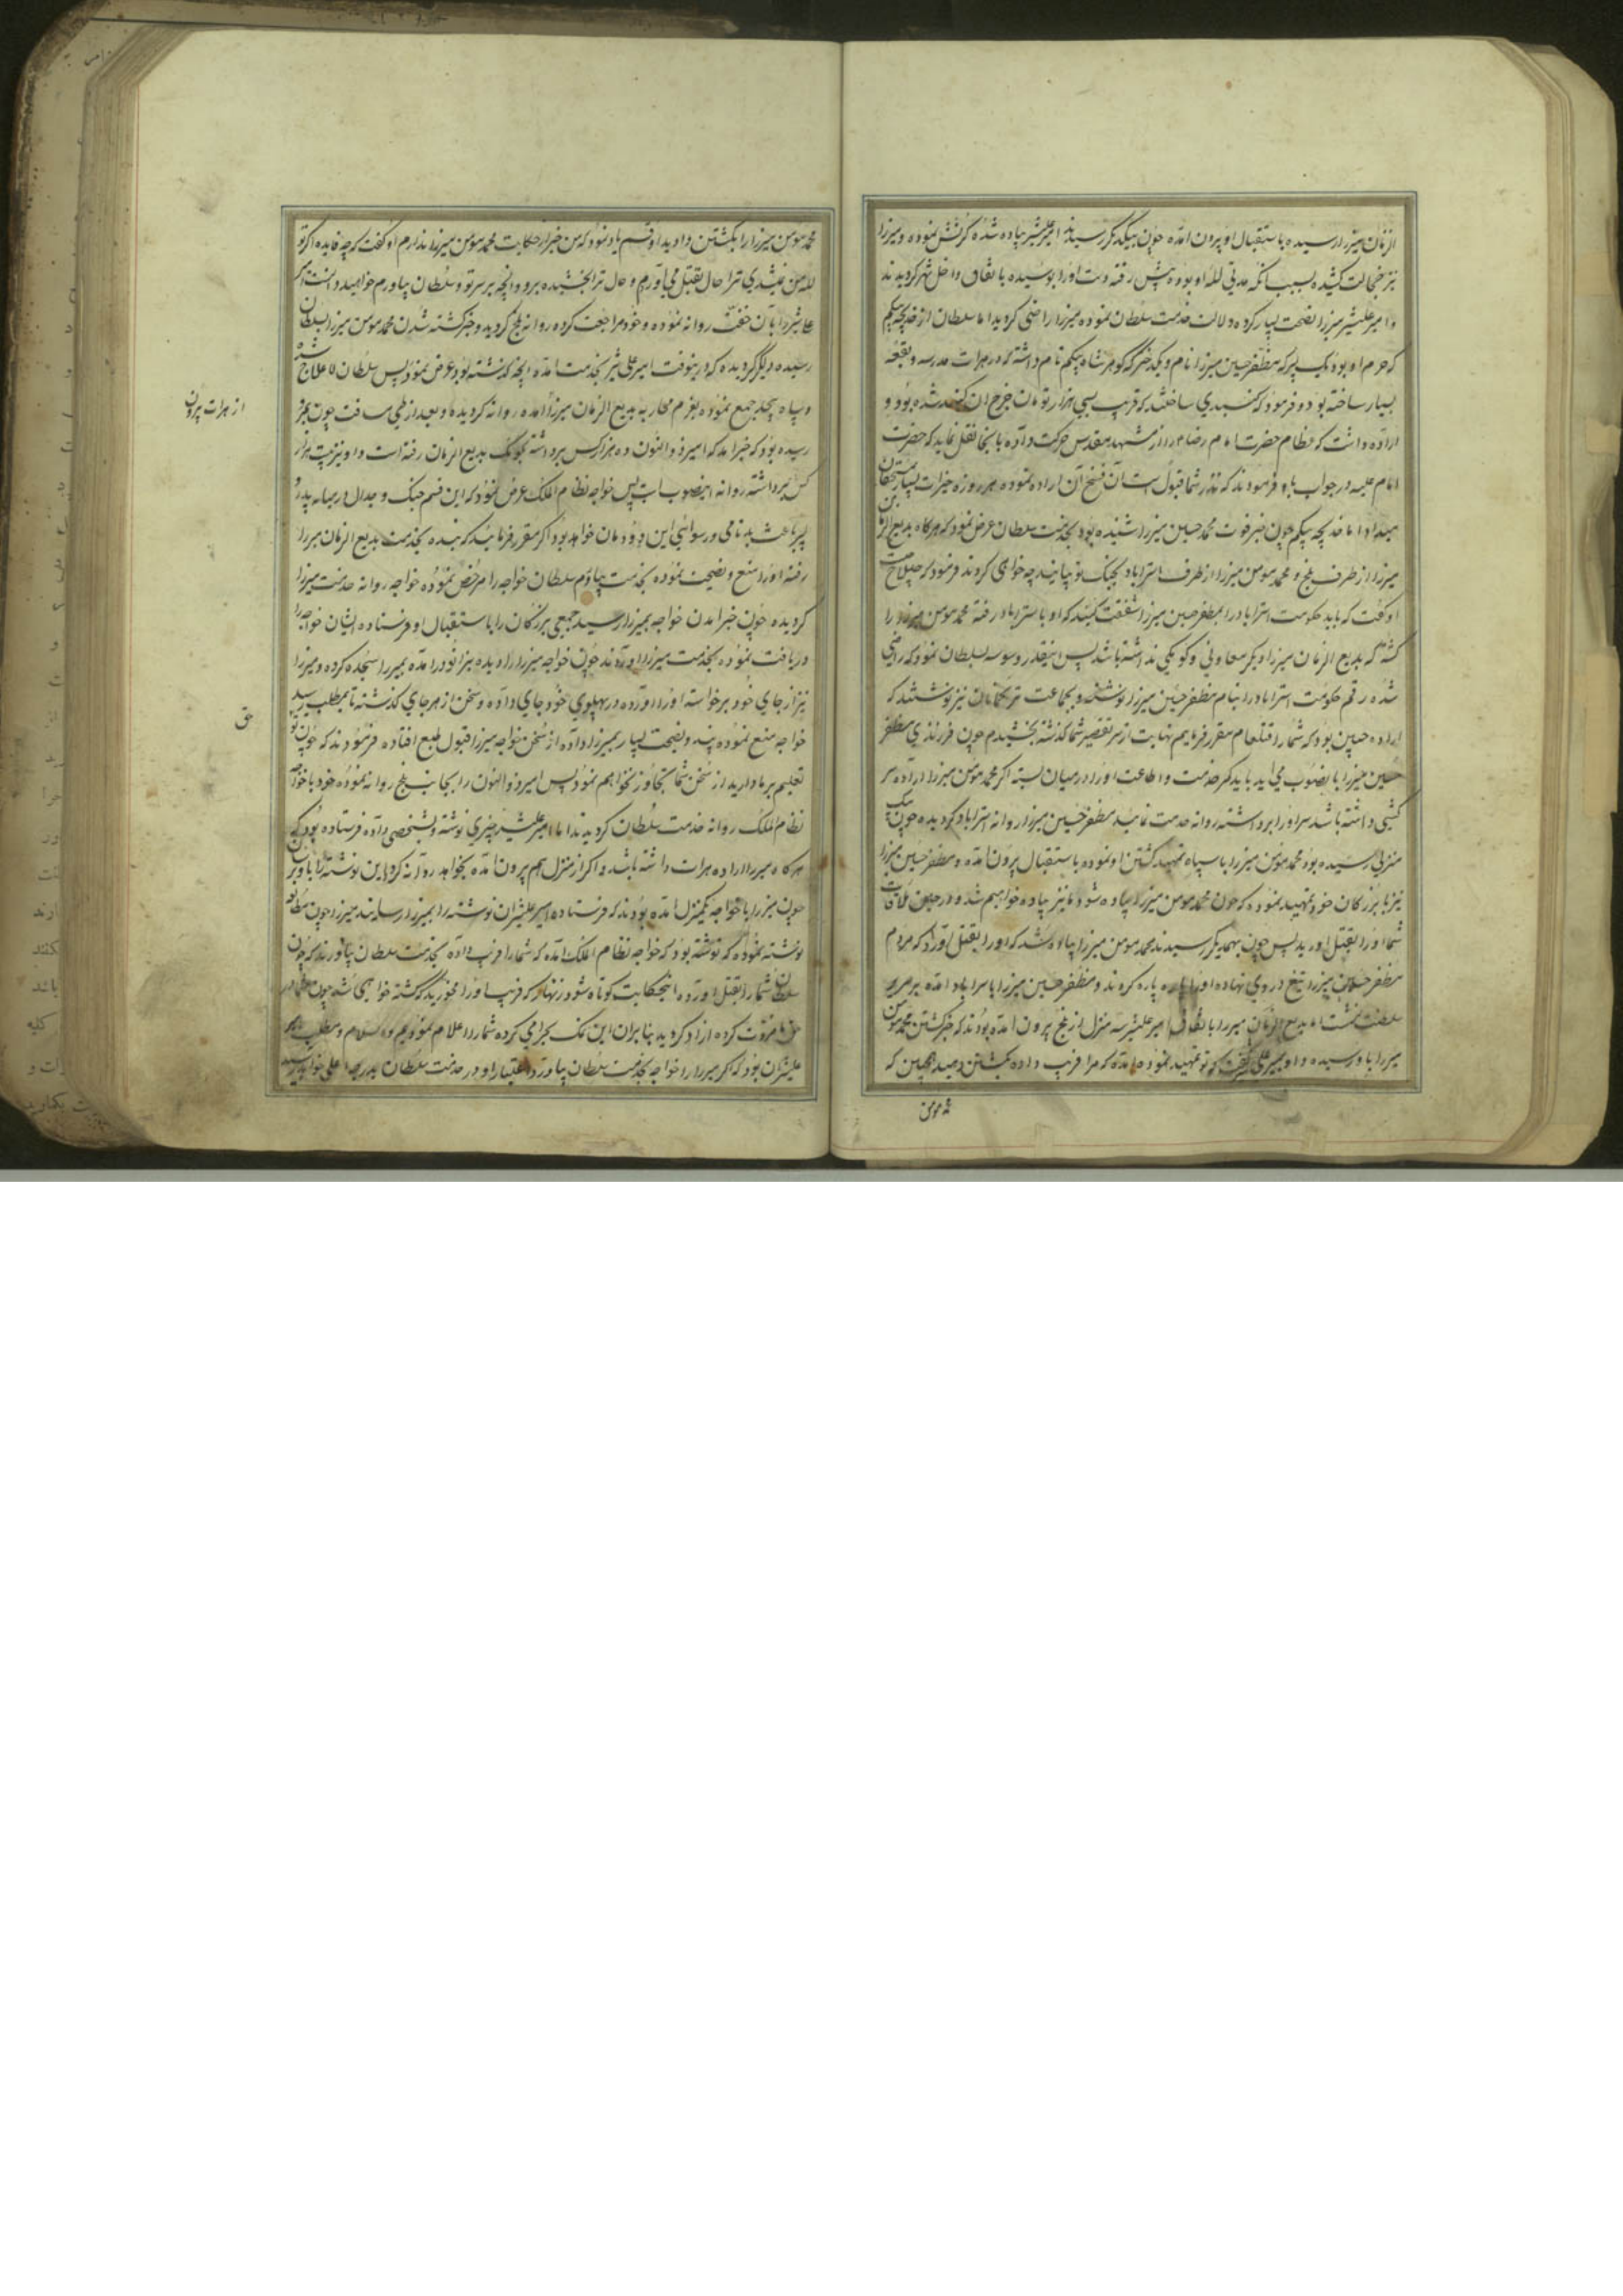 الزمان میرزا رسیده باستقبال او پرون امده چون بیکدیکر رسیدند امیر علیشیر پیاده شده کرنش نموده و میرزا
نیز خجالت کشیده بسبب انکه مدتی لله او بود پیش رفته دست اورا بوسیده باتفاق داخل شهر کردیدند
و امیر علیشیر میرزا نصحت بسیار کرده و دلالت خدمت سلطان نموده میرزا راضی کردید اما سلطان از خدیجه بیکم
که حرم او بود یک پسر که مظفر حسین میرزا نام و یکدختر که کوهر شاه بیکم نام داشته که در هرات مدرسه و بقعه
بسیار ساخته بود و فرمود که کنبدی ساختند که قریب بسی هزار تومان خرج ان کنبد شده بود و
اراده داشت که عظام حضرت امام رضا را از مشهد مقدس حرکت داده بانجا نقل نماید که حضرت
امام علیه در جواب باو فرمودند که نذر شما قبول است آن فسخ آن اراده نموده هر روزه خیرات بسیار بمستحقان
میداد اما خدیچه بیکم چون خبر فوت محمد حسین میرزا شنیده بود بخدمت سلطان عرض نمود که هرکاه بدیع الزمان
میرزا از طرف بلخ و محمد مومن میرزا از طرف استراباد بجنک تو بیایند چه خواهی کرد فرمود که چه صلاحست
او کفت که باید حکومت استراباد را بمظفر حسین میرزا شفقت کنید که او باسترابا‌د رفته محمد مومن میرزا را
کشته که بدیع الزمان میرزا دیکر معاونی و کومکی نداشته باشد پس اینقدر وسوسه سلطان نمود که راضی
شده رقم حکومت استراباد را بنام مظفر حسین میرزا نوشته و بجماعت ترکمانان نیز نوشتند که
اراده چنین بود که شما را قتلعام مقرر فرمایم نهایت از سر تقصیر شما کذشته بخشیدم چون فرزندی مظفر
حسین میرزا بانصوب می اید باید کمر خدمت و اطاعت اورا در میان بسته اکر محمد مومن میرزا اراده سر
کشی داشته باشد سر اورا برداشته روانه خدمت نمایند مظفر حسین میرزا روانه استراباد کردیده چون بیک
منزلی رسیده بود محمد مومن میرزا با سپاه تمهید کشتن او نموده باستقبال پرون امده و مظفر حسین میرزا
نیز با بزرکان خود تمهید نموده که چون محمد مومن میرزا پیاده شود ما نیز پیاده خواهیم شد و در حین ملاقات
شما اورا بقتل اورید پس چون بهمدیکر رسیدند محمد مومن میرزا پیاده شد که اورا بقتل اورد که مردم
مظفر حسین میرزا تیغ در وی نهاده اورا پاره پاره کردند و مظفر حسین میرزا باستراباد امده بر سریر
سلطنت نشست اما بدیع الزمان میرزا باتفاق امیر علیشیر سه منزل از بلخ پرون امده بودند که خبر کشتن محمد مومن
میرزا باو رسیده و او بمیر علیشیر کفت که تو تمهید نموده امده که مرا فریب داده بکشتن دهید همچنین که
محمد مومن
محمد مومن میرزا را بکشتن دادید او قسم یاد نمود که من خبر از حکایت محمد مومن میرزا ندارم او کفت که چه فایده اکر تو
لله من نمیشدی ترا حال بقتل می آوردم و حال ترا بخشیده برو و انچه بر سر تو و سلطان بیاورم خواهید دانست امیر
علیشیر را بآن خفت روانه نموده و خود مراجعت کرده روانه بلخ کردید و خبر کشته شدن محمد مومن میرزا بسلطان
رسیده دلگیر کردیده که درینوقت امیر علی شیر بخدمت امده انچه کذشته بود عرض نمود پس سلطان لاعلاج شده
و سپاه بیحد جمع نموده بعزم محاربه بدیع الزمان میرزا امده روانه کردیده و بعد از طی مسافت چون بمرو
رسیده بود که خبر امد که امیر ذوالنون ده هزار کس برداشته بکومک بدیع الزمان رفته است و او نیز بیست هزار
کس برداشته روانه اینصوب است پس خواجه نظام الملک عرض نمود که این قسم جنک و جدال در میانه پدر و
پسر باعث بدنامی و رسوائی این دودمان خواهد بود اکر مقرر فرمایند که بنده بخدمت بدیع الزمان میرزا
رفته اورا منع و نصیحت نموده بخدمت بیاورم سلطان خواجه را مرخص نموده خواجه روانه خدمت میرزا
کردیده چون خبر امدن خواجه بمیرزا رسید جمعی بزرکان را باستقبال او فرستاده ایشان خواجه را
دریافت نموده بخدمت میرزا اوردند چون خواجه میرزا را دیده بزانو درامده میرزا سجده کرده و میرزا
نیز از جای خود برخواسته اورا اورده در پهلوی خود جای داده و سخن از هر جای کذشته تا بمطلب رسید
خواجه منع نموده پند و نصیحت بسیار بمیرزا داده از سخن خواجه میرزا قبول طبع افتاده فرمودند که چون تو
تعلیم بر ما دارید از سخن شما تجاوز نخواهم نمود پس امیر ذوالنون را بجانب بلخ روانه نموده خود با خواجه
نظام الملک روانه خدمت سلطان کردیدند اما امیر علیشیر چیزی نوشته و بشخصی داده فرستاده بود که
هرکاه میرزا اراده هرات داشته باشد و اکر از منزل هم پرون امده بخواهد روانه کردد این نوشته را باو برسان
چون میرزا با خواجه یکمنزل امده بودند که فرستاده امیر علیشیر ان نوشته را بمیرزا رسانید میرزا چون مطالعه
نوشته نموده که نوشته بود که خواجه نظام الملک امده که شما را فریب داده بخدمت سلطان بیاورند که چون
سلطان شما را بقتل اورده اینحکایت کوتاه شود زنهار که فریب اورا مخورید که کشته خواهی شد چون شما در
حق ما مروت کرده ازاد کردید بنابران این نمک بحرامی کرده شما را اعلام نمودیم والسلام و مطلب امیر
علیشیر ان بود که اکر میرزا را خواجه بخدمت سلطان بیاورد اعتبار او در خدمت سلطان بدرجه اعلی خواهد رسید
از هرات پرون
حق